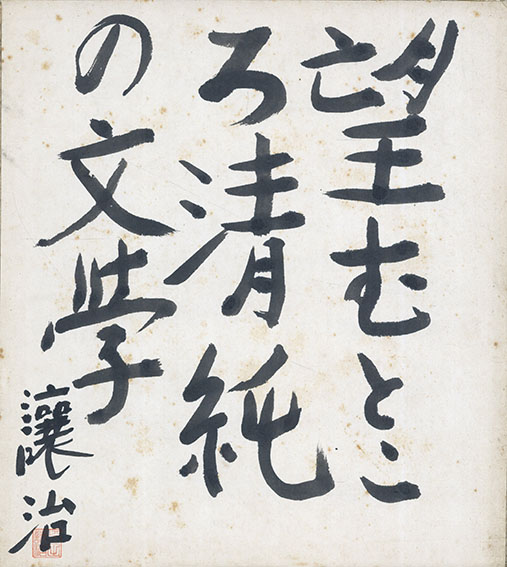 望むとこ
ろ清純
の文学
讓治